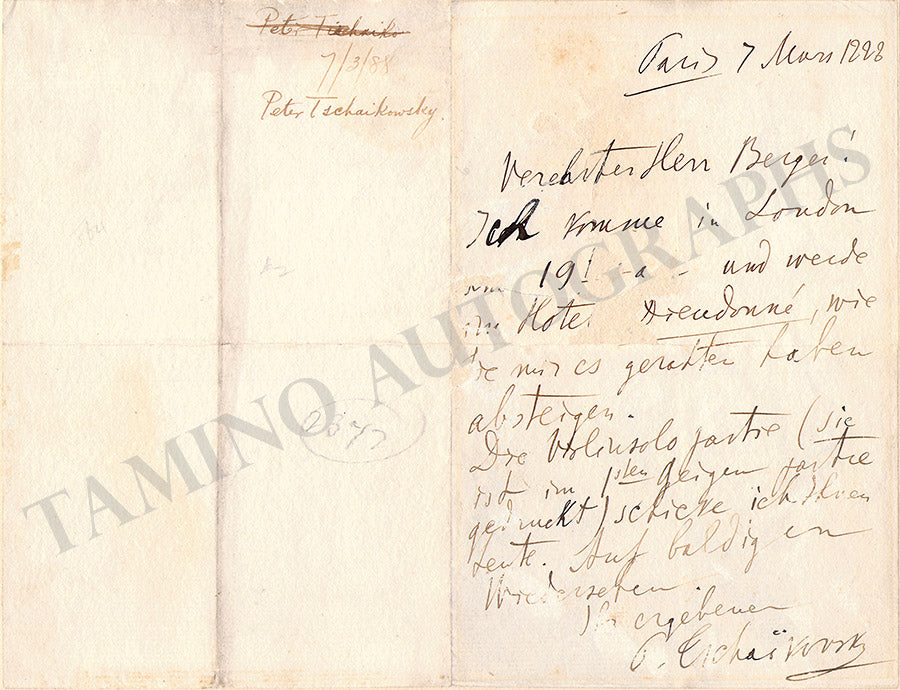 Peter Tschaiko
7/3/88
Peter Tschaikowsky.
Paris 7 Mars 1888
Verehrter Herr Berger!
Ich komme in London
19 und werde
im Hotel Dieudonné, wie
Sie mir es gerathen haben
absteigen.
Die Violinsolo partie (sie
ist im 1sten Geigen partie
gedruckt) schicke ich Ihnen
heute. Auf baldigem
Wiedersehen.
Ihr ergebener
P. Tschaïkovsky
TAMINO AUTOGRAPHS